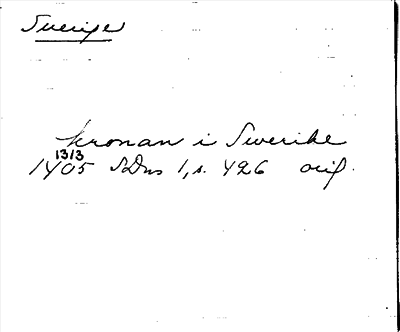 Sverige
kronan i Swerike
13/3
1405 SDns 1, s. 426 orig.